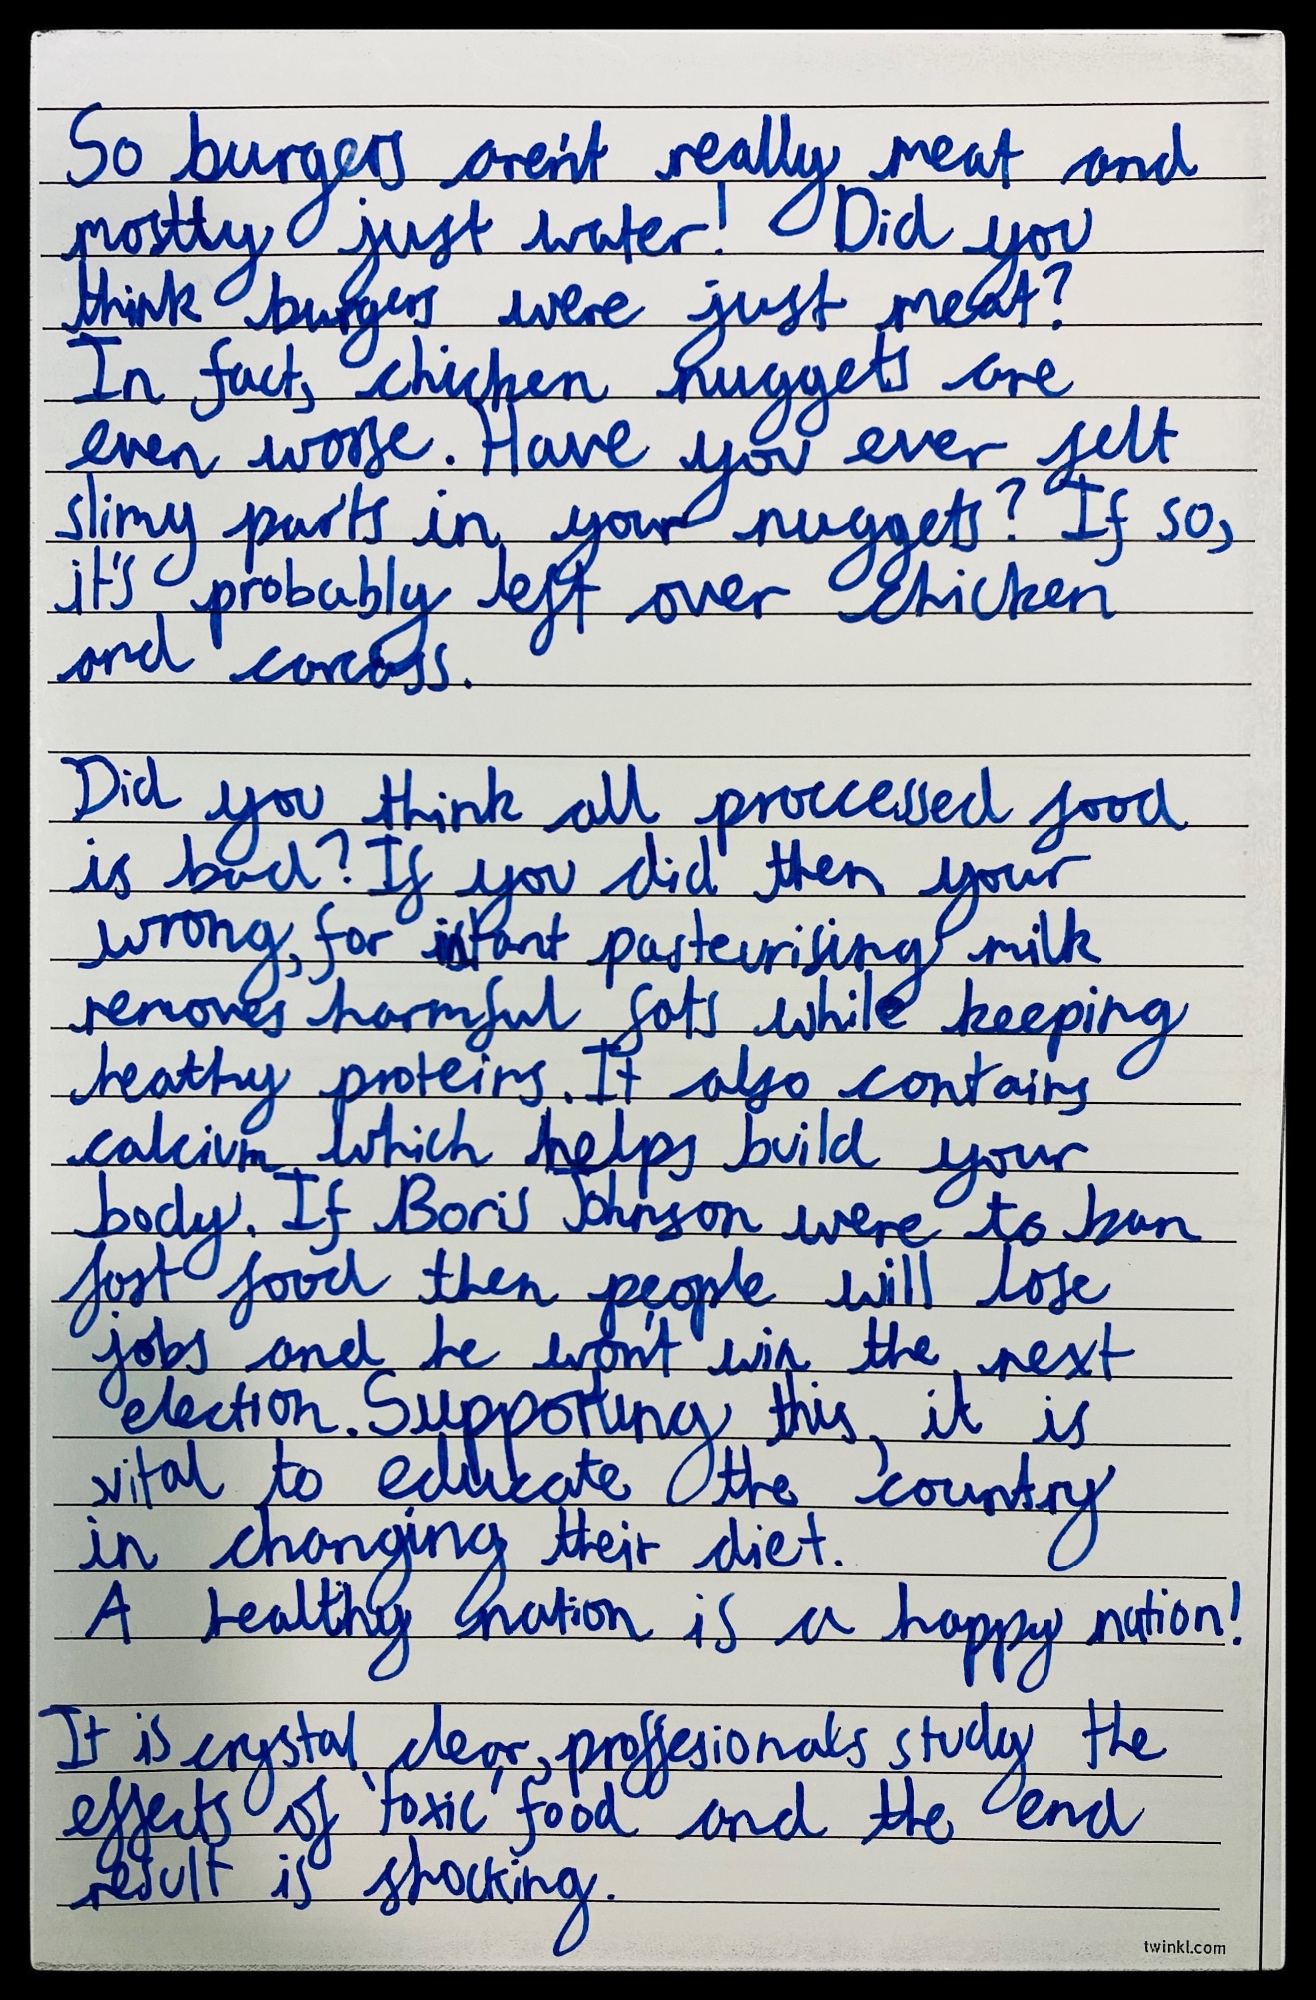 So burgers aren't really meat and
mostly just water! Did you
think burgers were just meat?
In fact, chicken nuggets are
even worse. Have you ever felt
slimy parts in your nuggets? If so,
it's probably left over chicken
and carcass.
Did you think all proccessed food
is bad? If you did then your
wrong, for instant pasteurising milk
removes harmful fats while keeping
heathy proteins. It also contains
calcium which helps build your
body. If Boris Johnson were to ban
fast food then people will lose
jobs and he won't win the next
election. Supporting this, it is
vital to educate the country
in changing their diet.
A healthy nation is a happy nation!
It is crystal clear, proffesionals study the
effects of 'toxic' food and the end
result is shocking.
twinkl.com